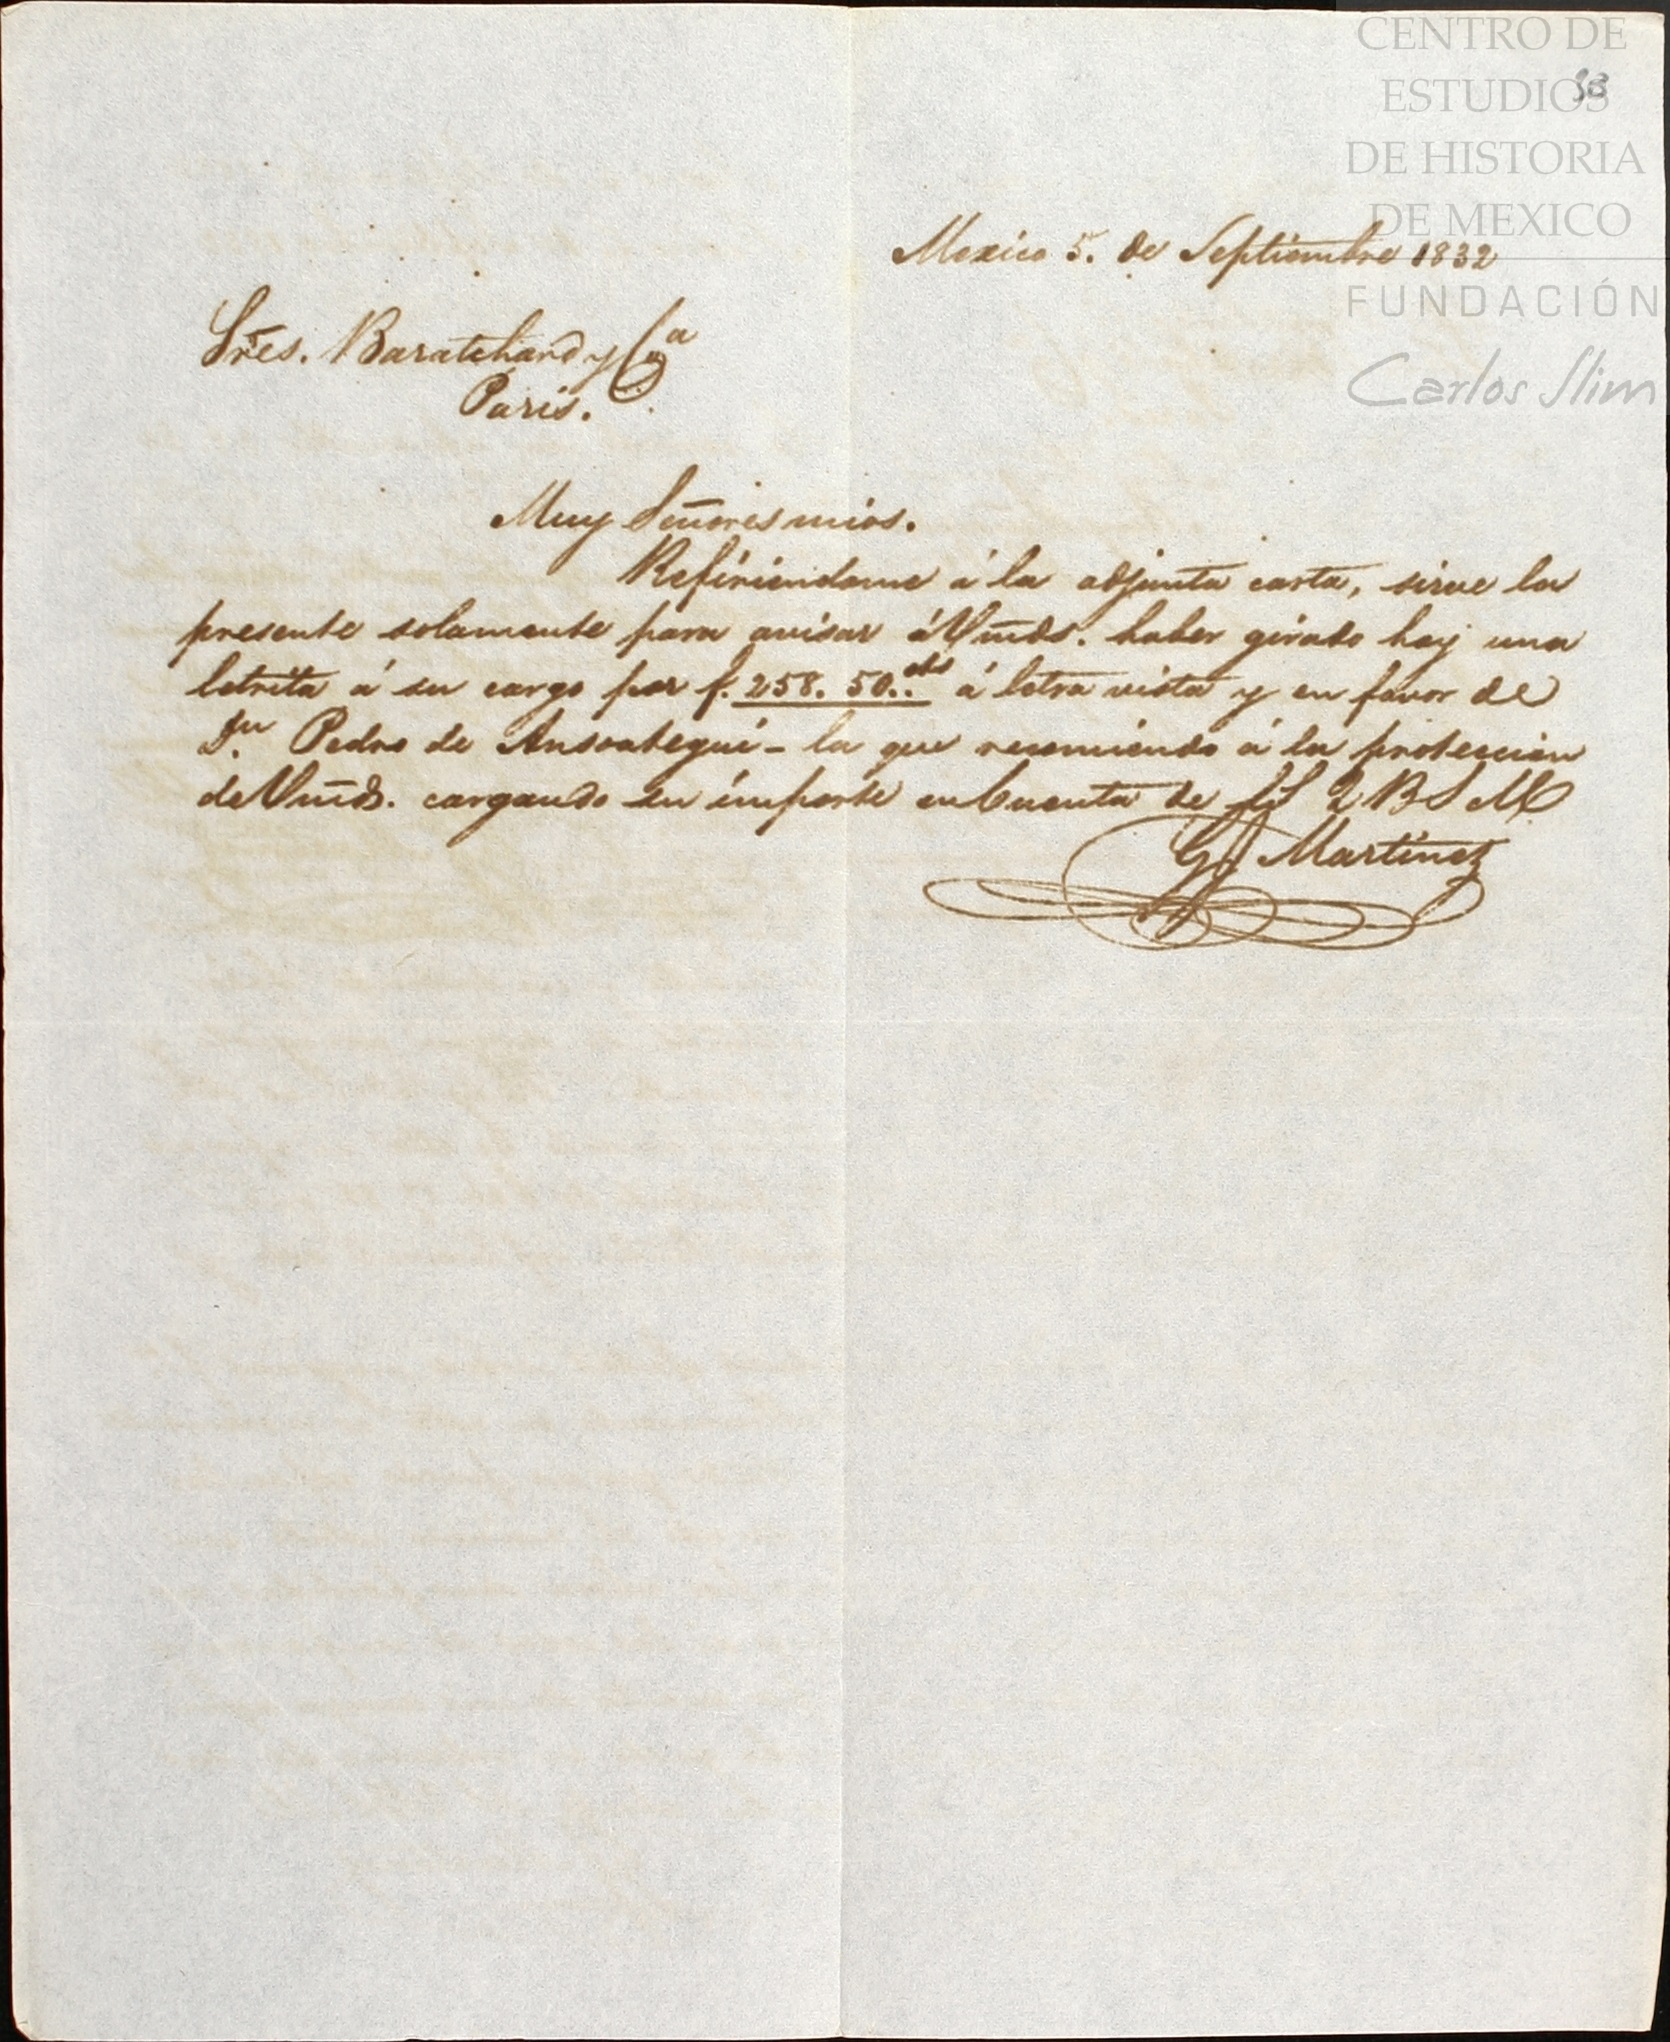 CENTRO DE
ESTUDIOS
DE HISTORIA
DE MEXICO
FUNDACIÓN
Carlos Slim
Mexico 5. de Septiembre 1832
Sres. Baratchard y Cia
Paris.
Muy Señores mios.
Refiriendome á la adjunta carta, sirve la
presente solamente para avisar á Vmds. haber girado hoy una
letrita á su cargo por f. 258. 50..cts á letra vista y en favor de
Dn. Pedro de Ansoategui - la que recomiendo á la proteccion
de Vmds. cargando su importe en Cuenta de SS Q B S M
G Martinez